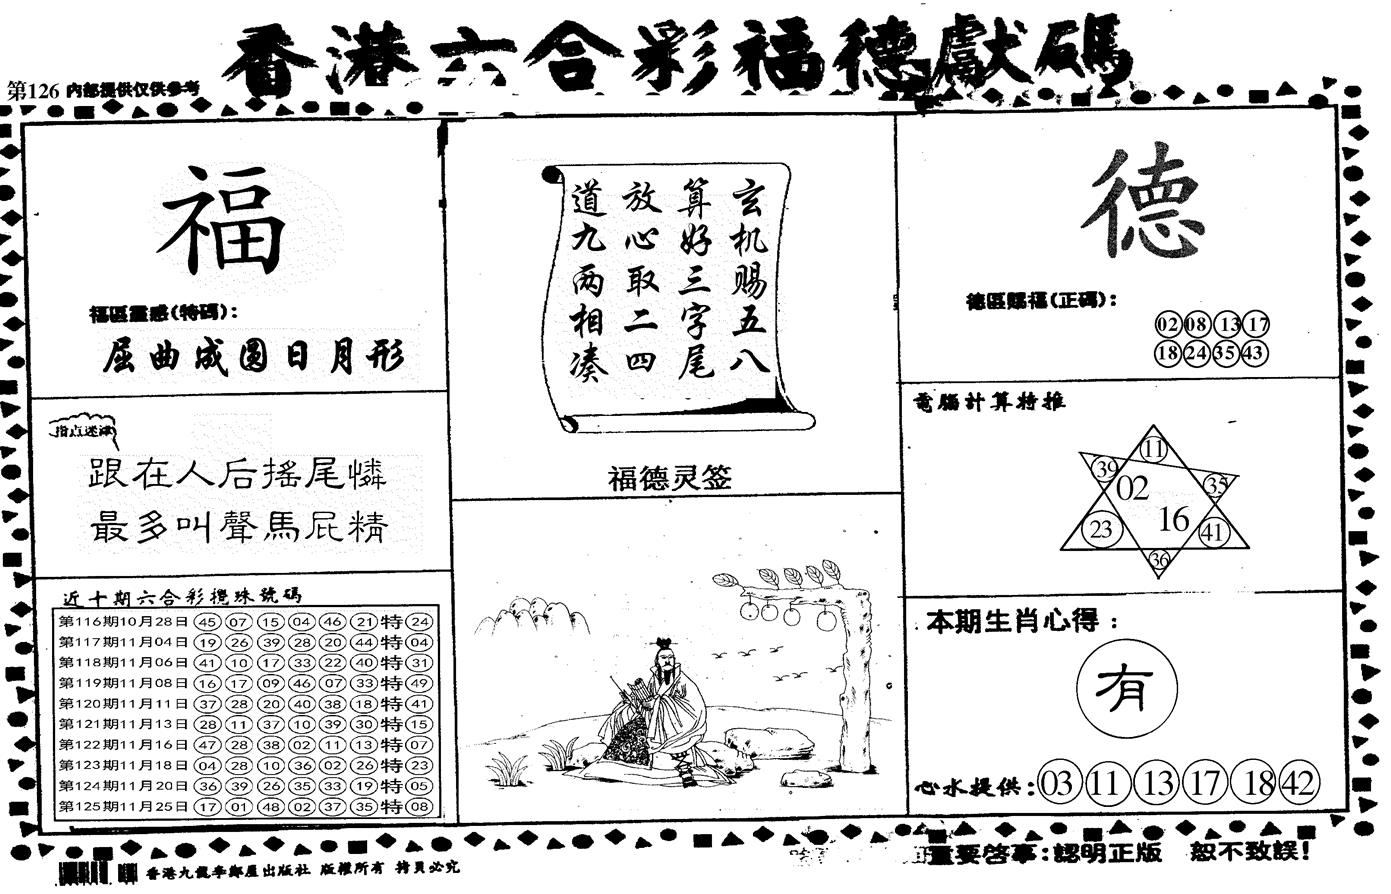 香港六合彩福德獻碼
第126 内部提供仅供參考
福
福區靈感(特碼):
屈曲成圆日月形
指点迷津
跟在人后搖尾憐
最多叫聲馬屁精
近十期六合彩攪珠號碼
第116期10月28日 45 07 15 04 46 21 特 24
第117期11月04日 19 26 39 28 20 44 特 04
第118期11月06日 41 10 17 33 22 40 特 31
第119期11月08日 16 17 09 46 07 33 特 49
第120期11月11日 37 28 20 40 38 18 特 41
第121期11月13日 28 11 37 10 39 30 特 15
第122期11月16日 47 28 38 02 11 13 特 07
第123期11月18日 04 28 10 36 02 26 特 23
第124期11月20日 36 39 26 35 33 19 特 05
第125期11月25日 17 01 48 02 37 35 特 08
玄机赐五八
算好三字尾
放心取二四
道九两相凑
福德灵签
德
德區賜福(正碼):
02 08 13 17
18 24 35 43
電腦計算特推
11
39
02
35
16
23
41
36
本期生肖心得:
有
心水提供: 03 11 13 17 18 42
重要啓事:認明正版 恕不致誤!
香港九龍李鄭屋出版社 版權所有 拷貝必究